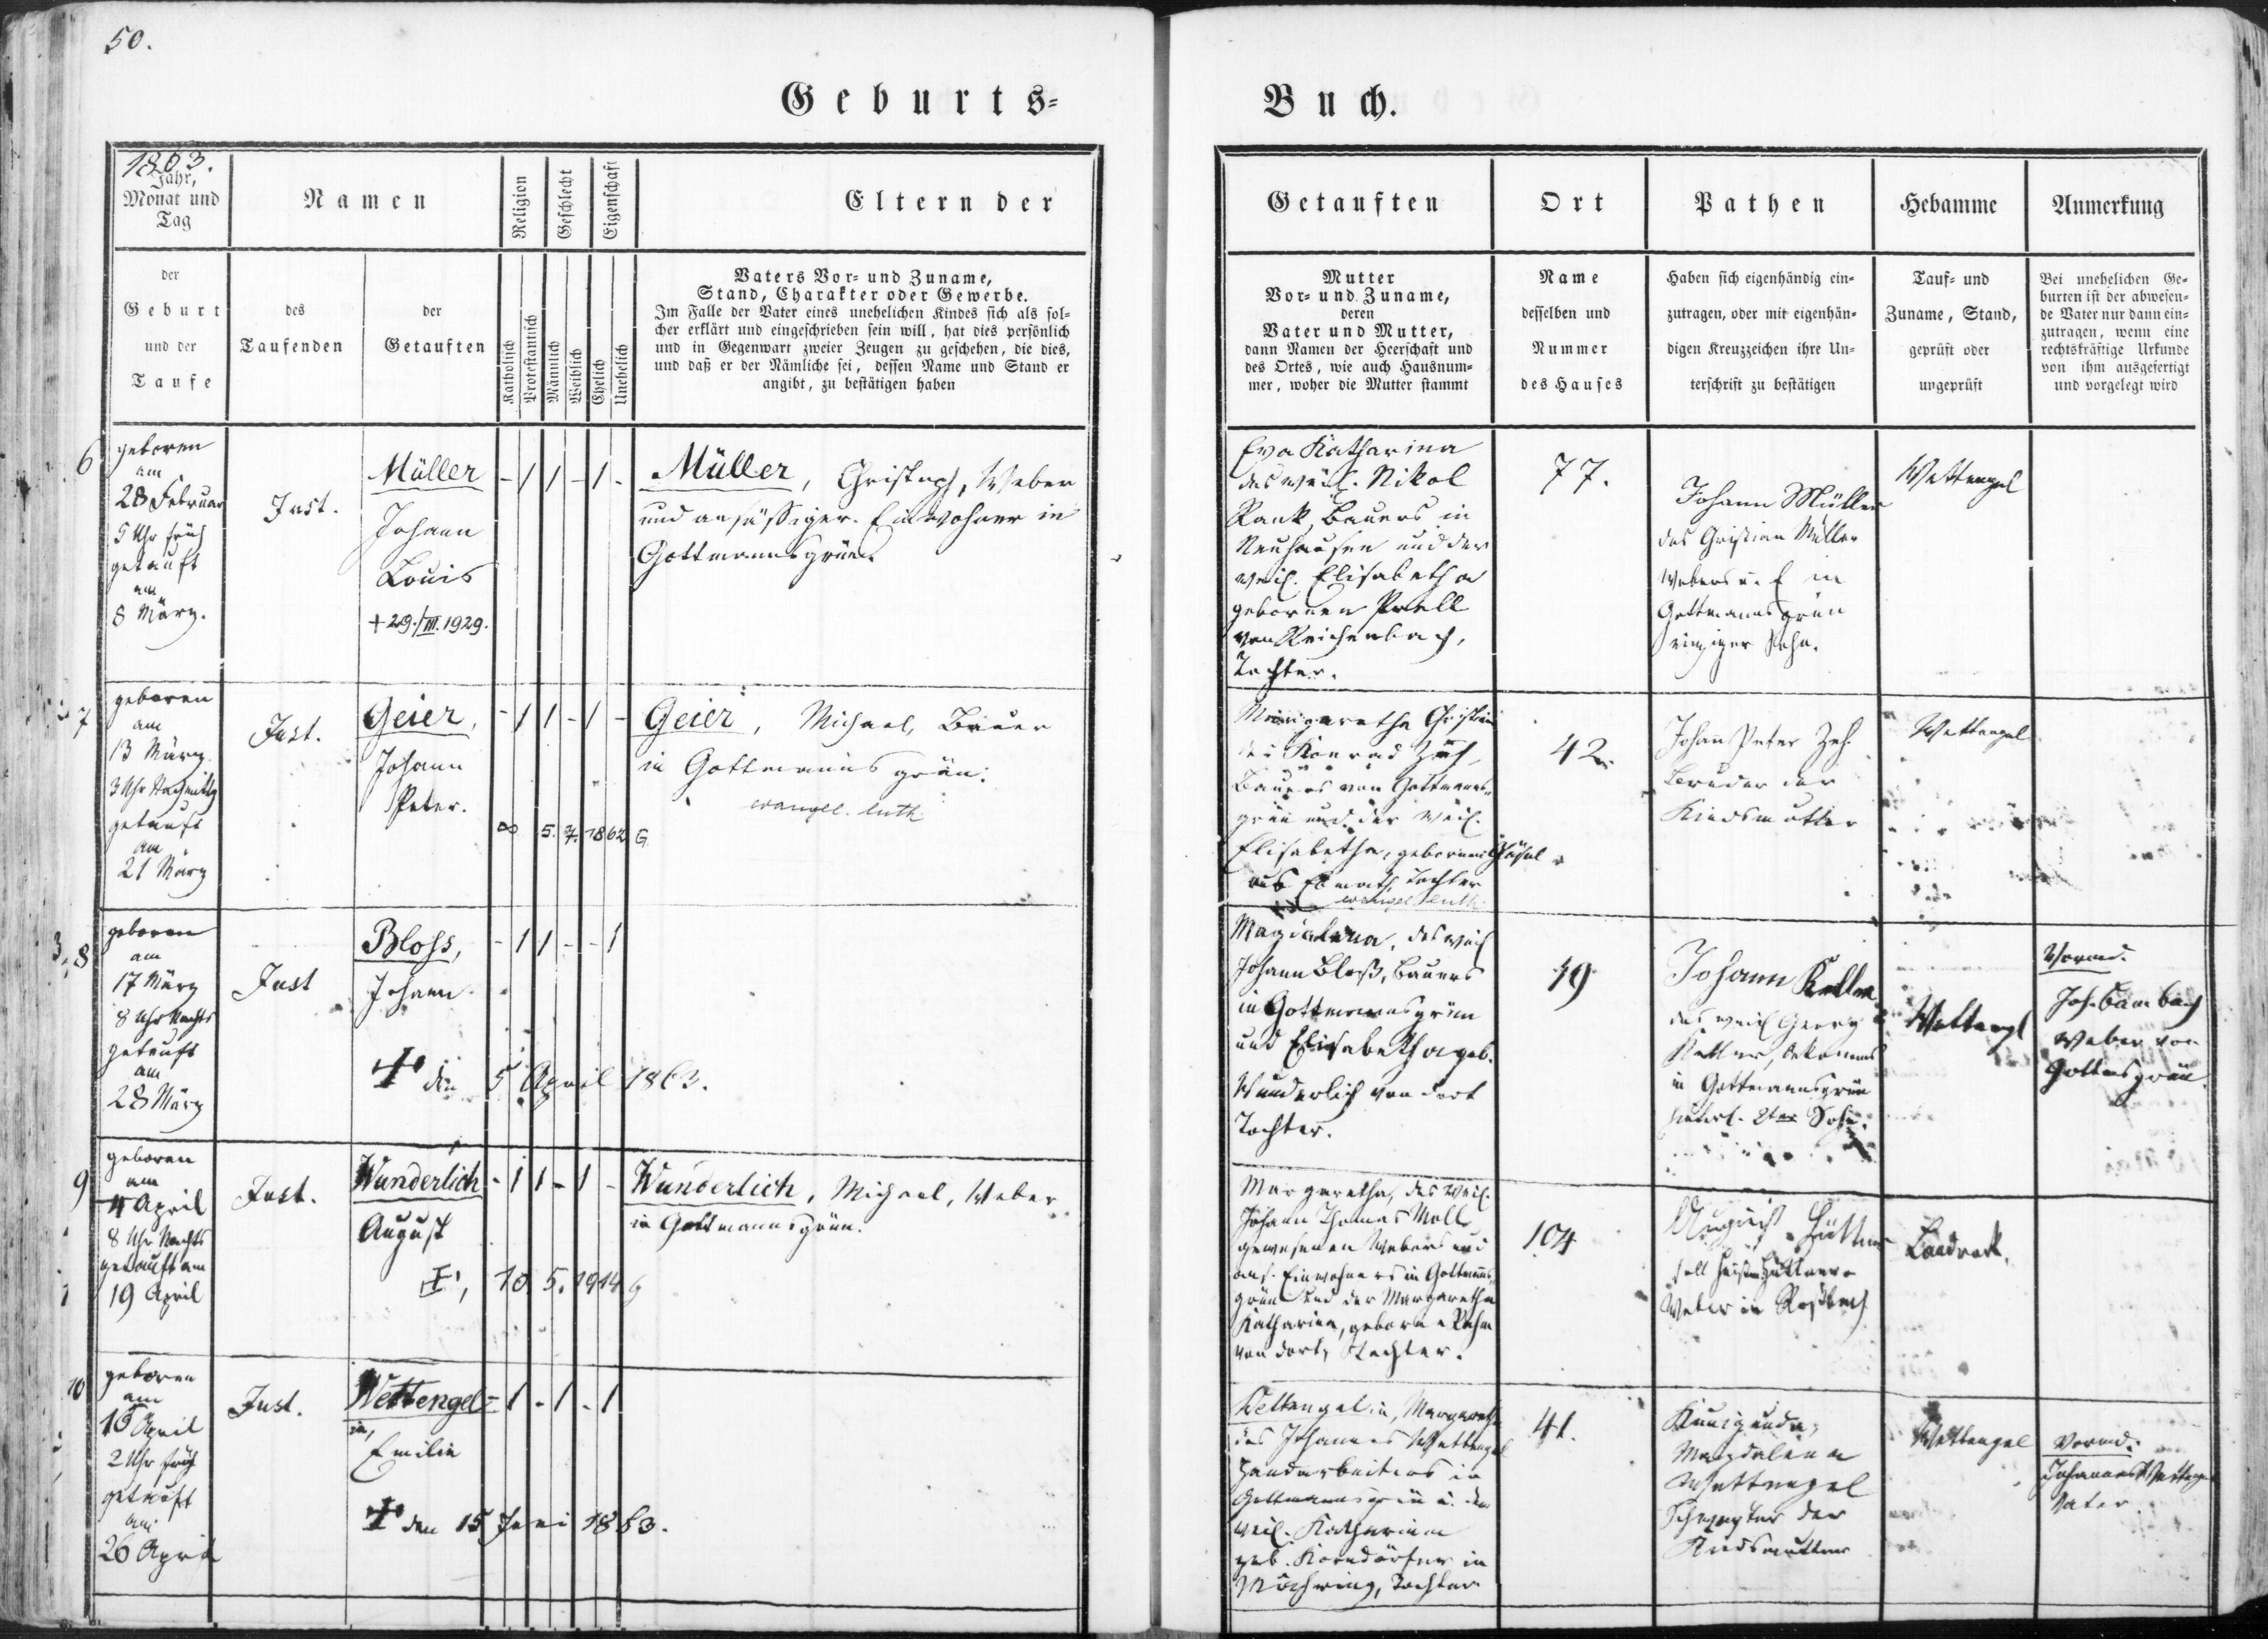 50.
Geburts=
Buch.
1863.
Jahr,
Monat und
Tag
Namen
Religion
Geschlecht
Eigenschaft
Eltern der
Getauften
Ort
Pathen
Hebamme
Anmerkung
der
Geburt
und der
Taufe
des
Taufenden
der
Getauften
Katholisch
Protestantisch
Männlich
Weiblich
Ehelich
Unehelich
Vaters Vor= und Zuname,
Stand, Charakter oder Gewerbe.
Im Falle der Vater eines unehelichen Kindes sich als sol=
cher erklärt und eingeschrieben sein will, hat dies persönlich
und in Gegenwart zweier Zeugen zu geschehen, die dies,
und daß er der Nämliche sei, dessen Name und Stand er
angibt, zu bestätigen haben
Mutter
Vor= und Zuname,
deren
Vater und Mutter,
dann Namen der Heerschaft und
des Ortes, wie auch Hausnum=
mer, woher die Mutter stammt
Name
desselben und
Nummer
des Hauses
Haben sich eigenhändig ein=
zutragen, oder mit eigenhän=
digen Kreuzzeichen ihre Un=
terschrift zu bestätigen
Tauf= und
Zuname, Stand,
geprüft oder
ungeprüft
Bei unehelichen Ge=
burten ist der abwesen=
de Vater nur dann ein=
zutragen, wenn eine
rechtskräftige Urkunde
von ihm ausgefertigt
und vorgelegt wird
6
geboren
am
28 Februar
5 Uhr früh
getauft
am
8 März.
Just.
Müller
Johann
Louis
+29./III.1929.
- 1 1 - 1 -
Müller, Christoph, Weber
und ansässiger Einwohner in
Gottmannsgrün.
Eva Katharina
des weil. Nikol
Rank, Bauers in
Neuhausen und der
weil. Elisabetha
gebornen Prell
von Reichenbach,
Tochter.
77.
Johann Müller
des Christian Müller
Webers u. E in
Gottmannsgrün
einziger Sohn.
Wettengel
7
geboren
am
13 März
3 Uhr Nachmittg
getauft
am
21 März
Just.
Geier,
Johann
Peter.
- 1 1 - 1 -
∞ 5. 7. 1862 G
Geier, Michael, Bauer
in Gottmannsgrün.
evangel. luth
Margaretha Christian
des Konrad Zeh,
Bauers von Gottmanns=
grün und der weil.
Elisabetha, gebornen
aus Tochter
evangel. luth.
42.
Johann Peter Zeh.
Bruder der
Kindsmutter
Wettengel
8
geboren
am
17 März
8 Uhr Nachts
getauft
am
28 März
Just
Bloss,
Johann
- 1 1 - - 1
+ den 5 April 1863.
Magdalena, des weil
Johann Bloß, Bauers
in Gottmannsgrün
und Elisabetha geb.
Wunderlich von dort
Tochter.
19
Johann
des weil Georg
in Gottmannsgrün
2ter Sohn.
Wettengel
Vormd.
Joh. Baumbach
Weber von
Gottmsgrün
9
geboren
am
4 April
8 Uhr Nachts
getauft am
19 April
Just.
Wunderlich
August
- 1 1 - 1 -
+, 10. 5. 1914 G
Wunderlich, Michael, Weber
in Gottmannsgrün.
Margaretha, des weil.
Johann Thomas Moll
gewesenen Webers und
ans. Einwohners in Gottmanns=
grün und der Margaretha
Katharina, geborne
von dort, Tochter.
104
August Hüttner
Weber in Roßbach
10
geboren
am
10 April
2 Uhr früh
getauft
am
26 April
Just.
Wettengel=
in,
Emilie
1 - 1 - 1
+ den 15 Juni 1863.
Wettengelin, Margareth
des Johannes Wettengel
Handarbeiters in
Gottmannsgrün u. der
weil. Katharina
geb. Korndörfer in
Tochter
41.
Kunigunda
Magdalena
Wettengel
Schwester der
Kindsmutter
Wettengel
Vormd:
Johannes Wettengel
Vater